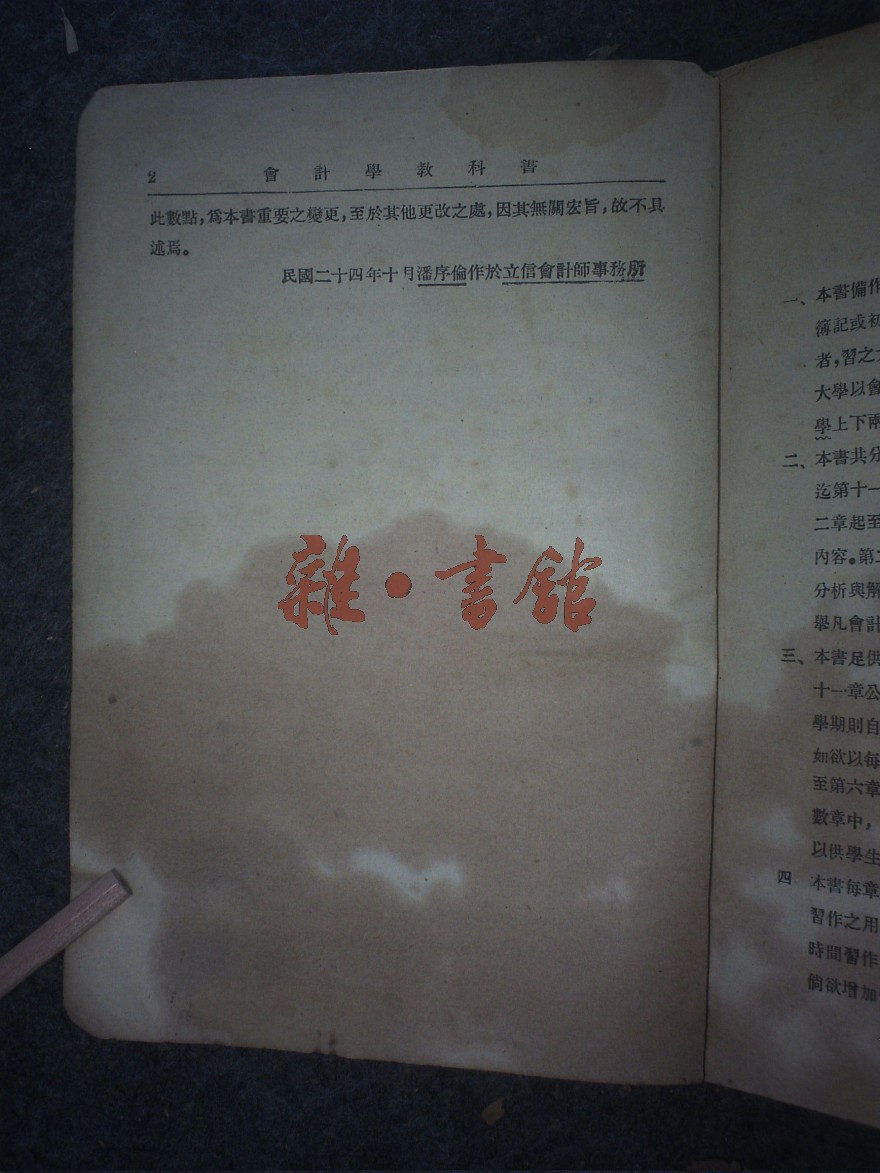 2 會計學教科書
此數點，爲本書重要之變更，至於其他更改之處，因其無關宏旨，故不具
述焉。
民國二十四年十月潘序倫作於立信會計師事務所
雜·書館
一、本書備作
簿記或初
者，習之
大學以會
學上下兩
二、本書共分
迄第十一
二章起至
內容。第二
分析與解
舉凡會計
三、本書足供
十一章公
學期則自
如欲以每
至第六章
數章中，
以供學生
四 本書每章
習作之用
時間習作
倘欲增加